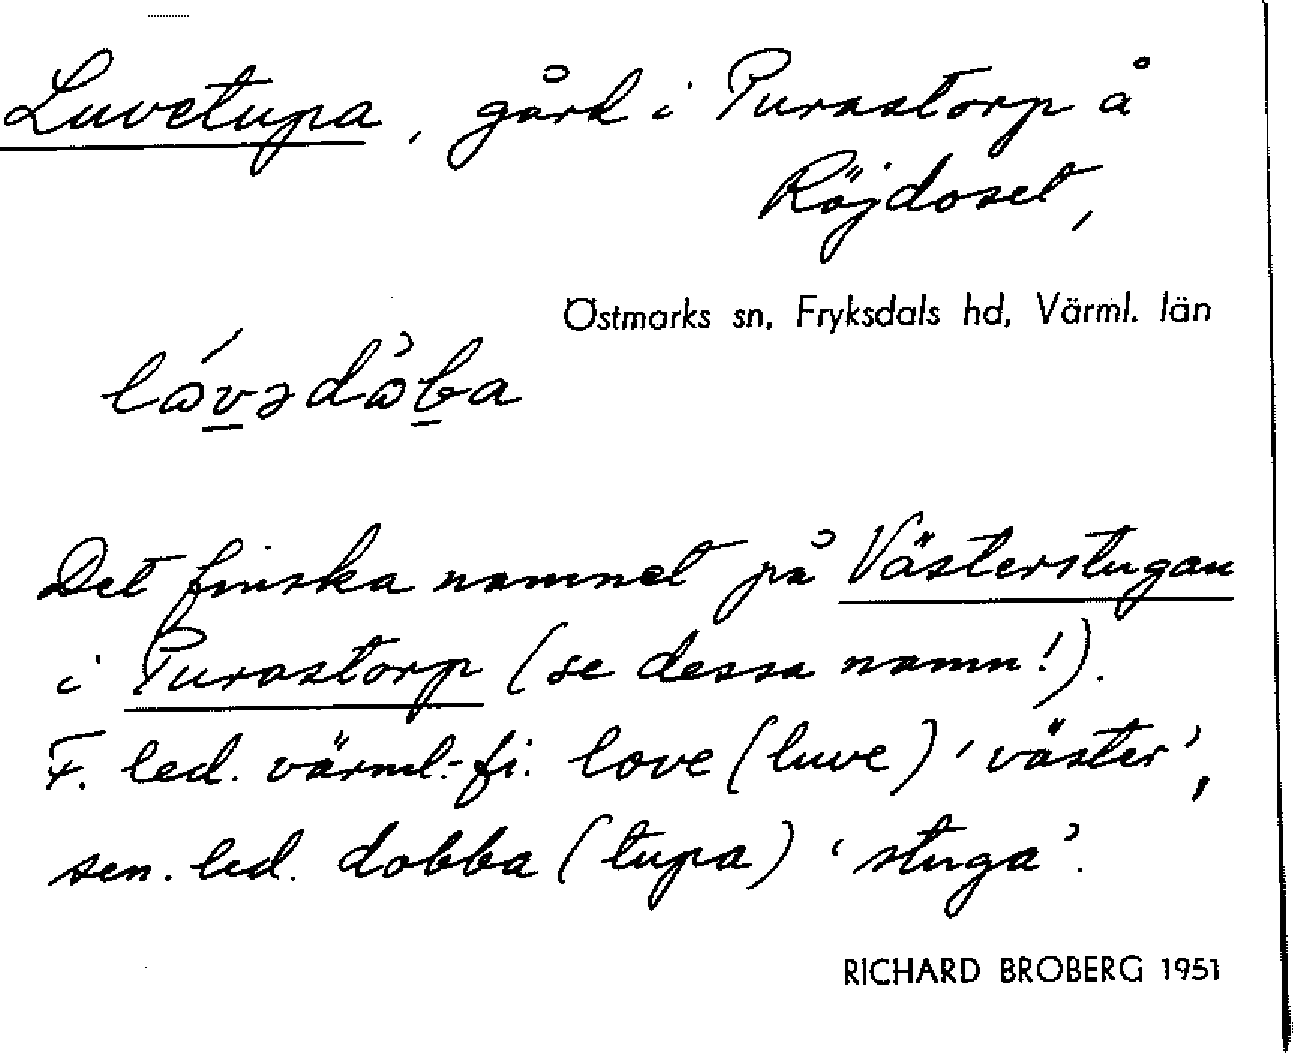 Luvetupa, gård i Purastorp å
Röjdoset,
Östmarks sn, Fryksdals hd, Värml. län
lɷ́vədɷ̀ba
Det finska namnet på Västerstugan
i Purastorp (se dessa namn!).
F. led. värml.-fi. love (luve) 'väster',
sen. led. dobba (tupa) 'stuga'.
RICHARD BROBERG 1951